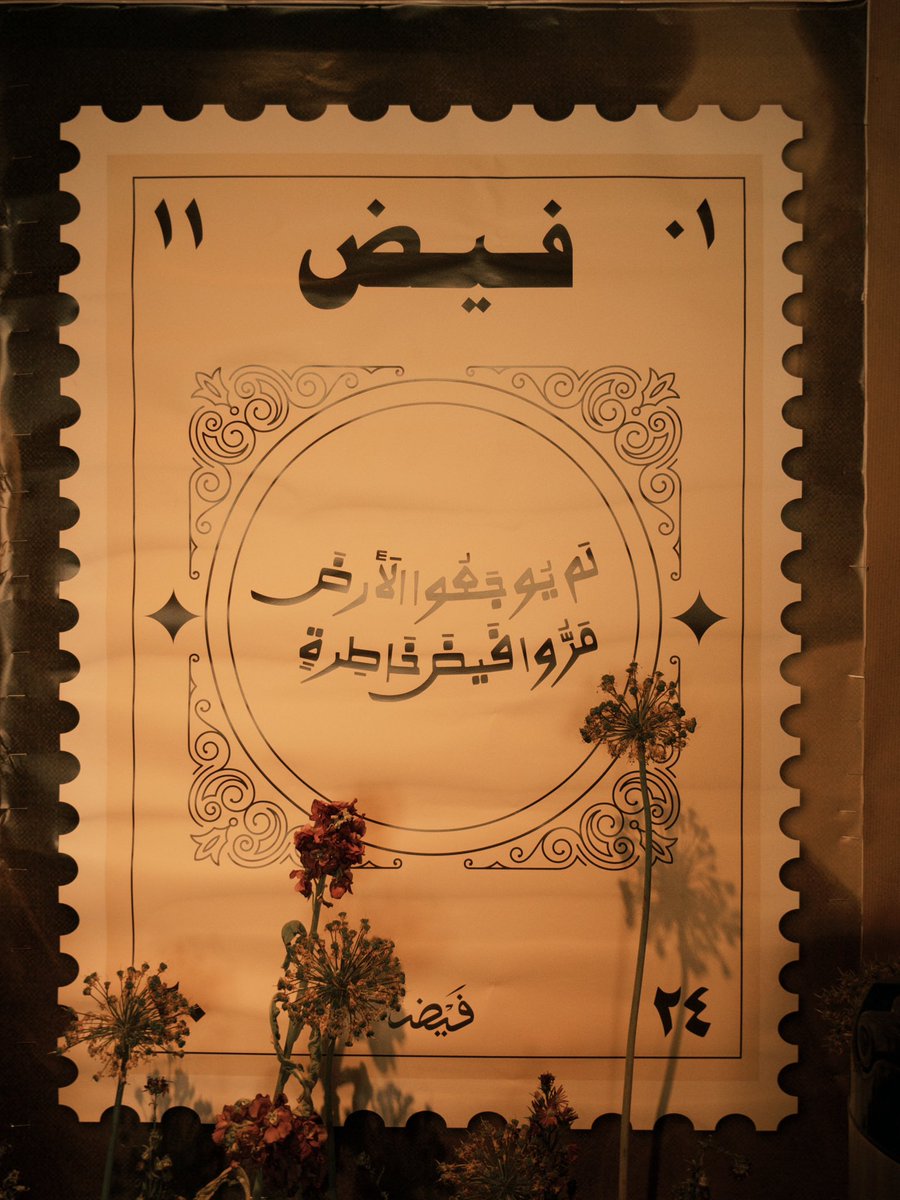 ٠١
فيض
١١
لَم يُوجَعُوا الأَرضَ
مَرُّوا فَيضَ خَاطِرةٍ
٢٤
فَيْض